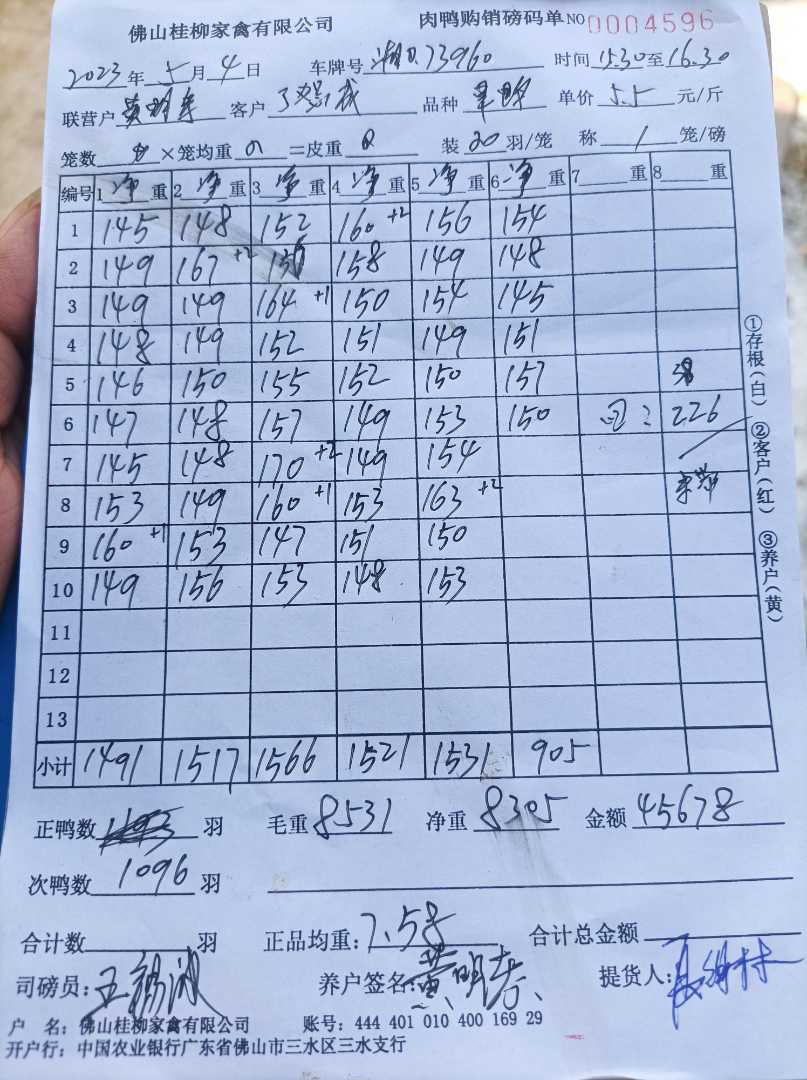 佛山桂柳家禽有限公司 肉鸭购销磅码单 NO 0004596
2023 年 5 月 4 日 车牌号 73960 时间 15.30 至 16.30
联营户 客户 品种 单价 5.5 元/斤
笼数 × 笼均重 =皮重 装 20 羽/笼 称 1 笼/磅
编号 1 净 重 2 净 重 3 净 重 4 净 重 5 净 重 6 净 重 7 重 8 重
1 145 148 152 160 +2 156 154
2 149 167 +2 158 149 148
3 149 149 164 +1 150 154 145
4 148 149 152 151 149 151
5 146 150 155 152 150 157
6 147 148 157 149 153 150 226
7 145 148 170 +2 149 154
8 153 149 160 +1 153 163 +2
9 160 +1 153 147 151 150
10 149 156 153 148 153
11
12
13
小计 1491 1517 1566 1521 1531 905
①存根(白) ②客户(红) ③养户(黄)
正鸭数 羽 毛重 8531 净重 8305 金额 45678
次鸭数 1096 羽
合计数 羽 正品均重: 7.58 合计总金额
司磅员: 养户签名: 提货人:
户 名: 佛山桂柳家禽有限公司 账号: 444 401 010 400 169 29
开户行: 中国农业银行广东省佛山市三水区三水支行